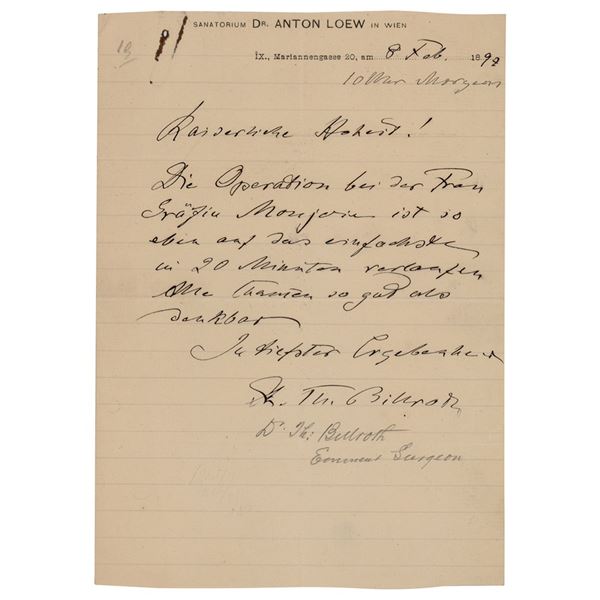 SANATORIUM DR. ANTON LOEW IN WIEN
IX., Mariannengasse 20, am 8 Feb. 189
10 Uhr Morgens
Kaiserliche Hoheit!
Die Operation bei der Frau
Gräfin ist so
eben auf das einfachste
in 20 Minuten verlaufen
Alle so gut als
denkbar
In tiefster Ergebenheit
Th. Billroth
Dr. Th: Billroth
Eminent Surgeon